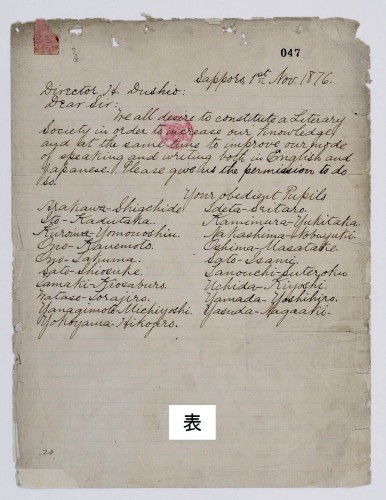 047
Sapporo, 1st Nov. 1876.
Director H. Dushio:
Dear Sir:
We all desire to constitute a Literary
Society in order to increase our knowledge
and at the same time to improve our mode
of speaking and writing both in English and
Japanese. Please give us the permission to do
so.
Your obedient Pupils
Arakawa-Shigehide
Ito-Kadutaka.
Kurowa-Yomouoshin.
Ono-Kanemoto.
Ono-Takuma.
Sato-Shiosuke.
Tamaki-Kiosaburo.
Watase-Torajiro.
Yanagimoto-Michiyoshi.
Yokoyama-Hikopro.
Ideta-Seitaro.
Kamemura-Yukitaka.
Nakashima-Nobuyuti.
Oshima-Masatake
Sato-Isami.
Sanouchi-Suteroku
Uchida-Kiyoshi.
Yamada-Yoshihiro.
Yasuda-Nagaaki.
表